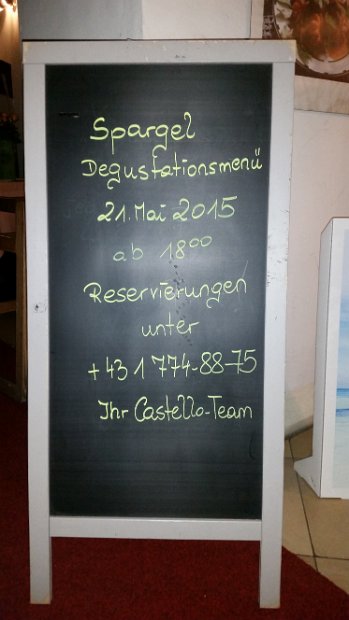 Spargel
Degustationsmenü
21. Mai 2015
ab 18⁰⁰
Reservierungen
unter
+43 1 774-88-75
Ihr Castello-Team